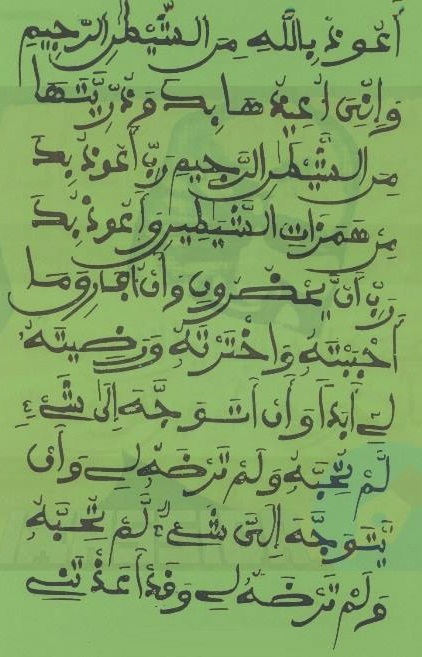 أَعُوذُ بِاللَّهِ مِنَ الشَّيْطَٰنِ الرَّجِيمِ
وَإِنِّي أُعِيذُهَا بِكَ وَذُرِّيَّتَهَا
مِنَ الشَّيْطَٰنِ الرَّجِيمِ رَبِّ أَعُوذُ بِكَ
مِنْ هَمَزَاتِ الشَّيَٰطِينِ وَأَعُوذُ بِكَ
رَبِّ أَنْ يَّحْضُرُونِ وَأَنْ وَمَا
أَحْبَبْتَهُ وَاخْتَرْتَهُ وَرَضِيتَهُ
لِي أَبَدًا وَأَنْ أَتَوَجَّهَ إِلَى شَيْءٍ
لَّمْ تُحِبَّهُ وَلَمْ تَرْضَهُ لِي وَأَنْ
يَّتَوَجَّهَ إِلَيَّ شَيْءٌ لَّمْ تُحِبَّهُ
وَلَمْ تَرْضَهُ لِي وَقَدْ أَعَذْتَنِي